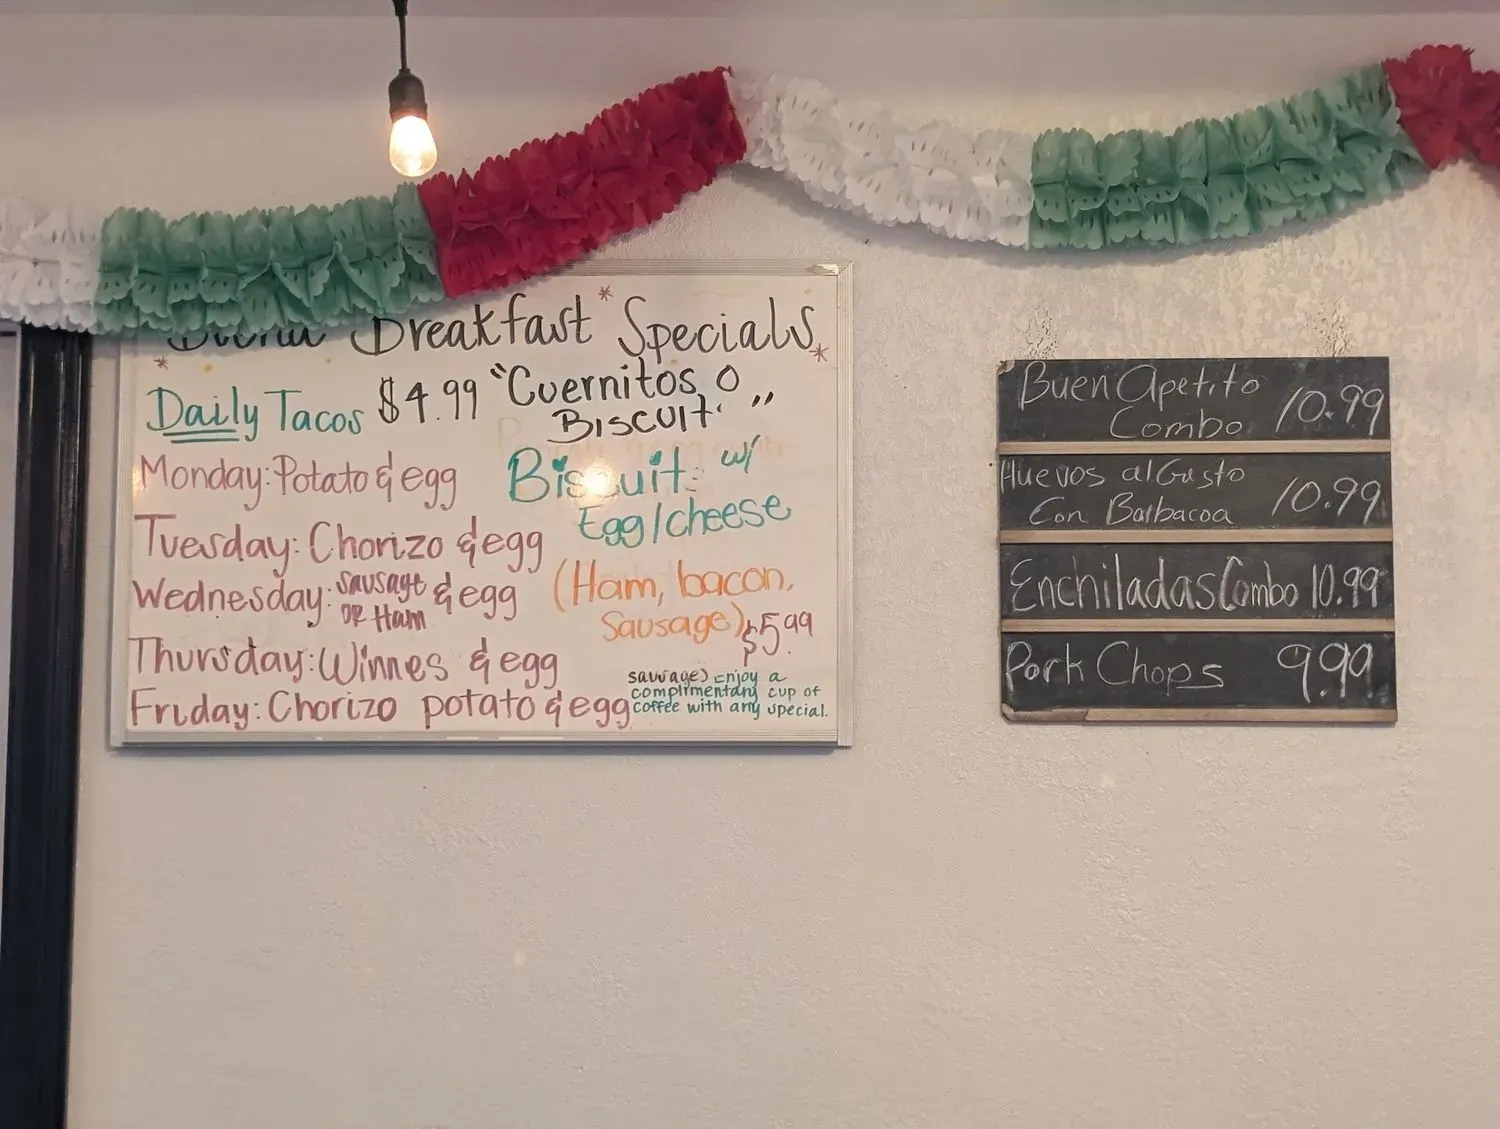 Breakfast Specials
Daily Tacos $4.99
Monday: Potato & egg
Tuesday: Chorizo & egg
Wednesday: sausage or Ham & egg
Thursday: Winnes & egg
Friday: Chorizo potato & egg
"Cuernitos O
Biscuit"
Biscuit w/
Egg/cheese
(Ham, bacon,
Sausage) $5.99
sausage) Enjoy a
complimentary cup of
coffee with any special.
Buen Apetito
Combo 10.99
Huevos al Gusto
Con Barbacoa 10.99
Enchiladas Combo 10.99
Pork Chops 9.99